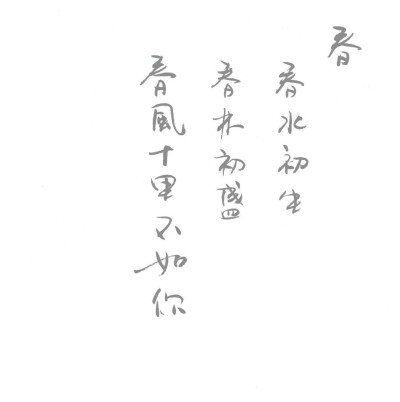 春
春水初生
春林初盛
春風十里不如你